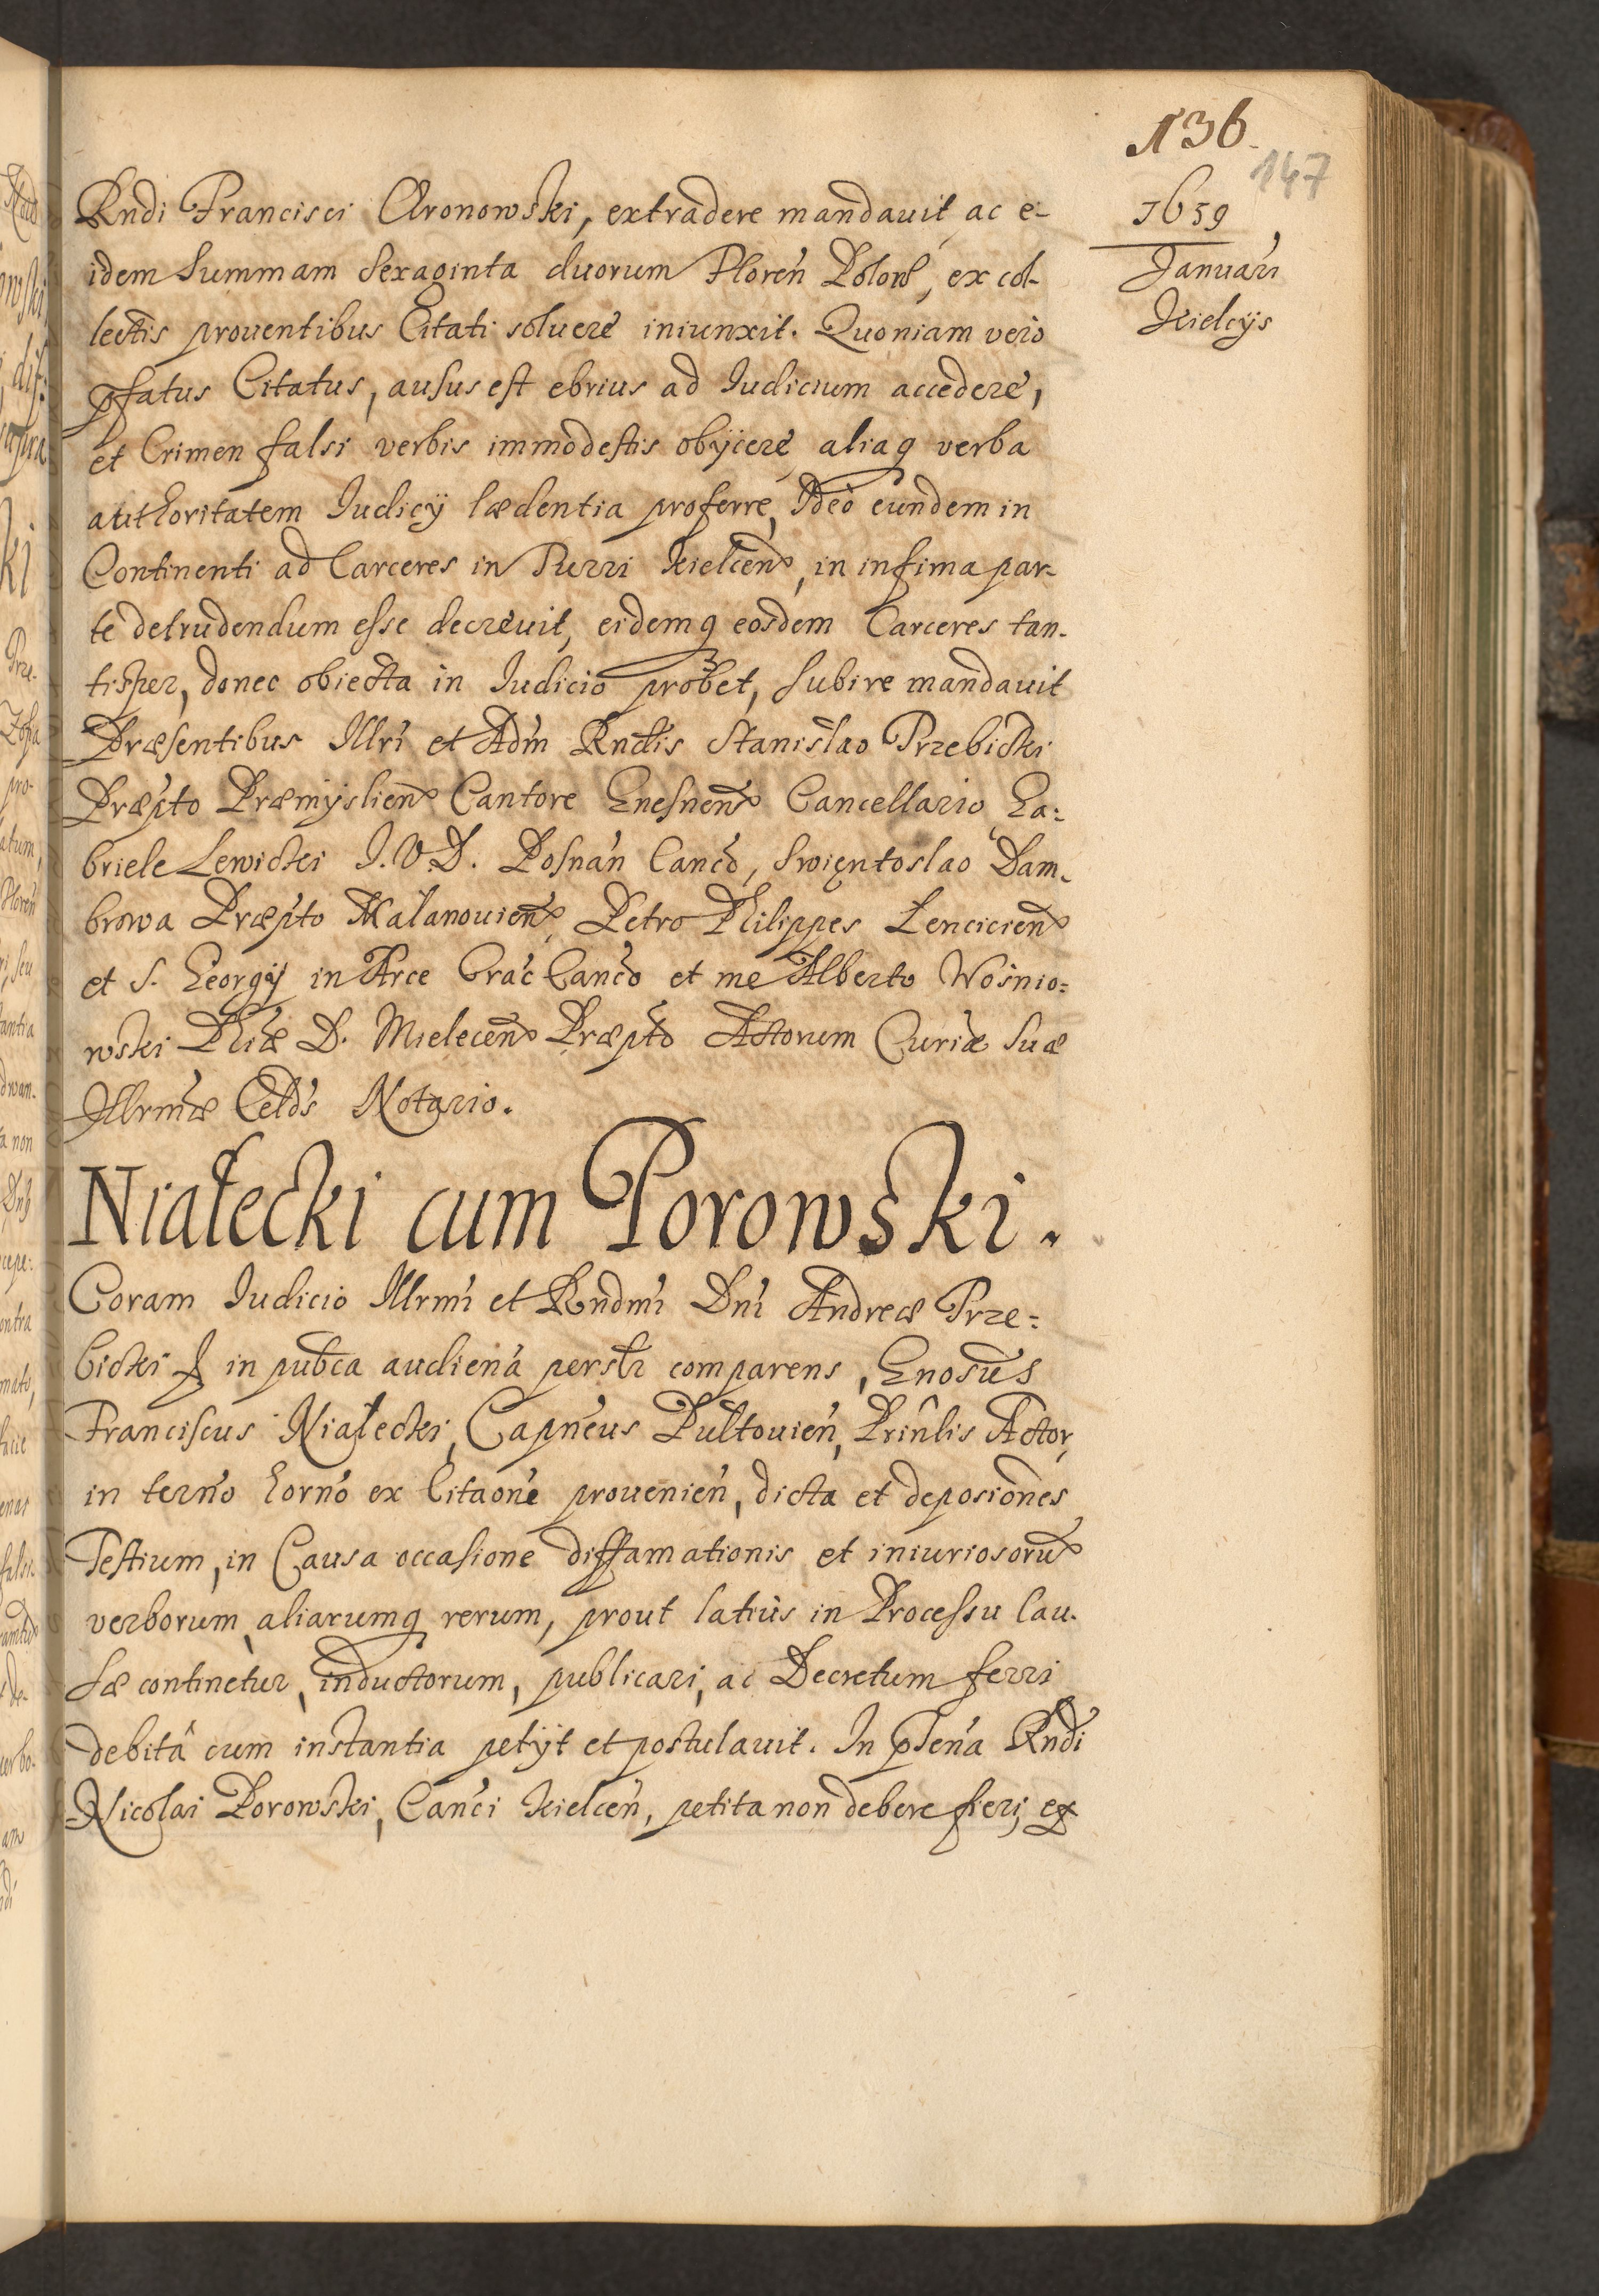 136.
147
1659
Januarÿ
Kielcÿs
Rndi Francisci Aronowski, extradere mandauit ac e-
idem summam sexaginta duorum Floreń Polonẽ, ex col-
lectis prouentibus Citati soluere iniunxit. Quoniam vero
pfatus Citatus, ausus est ebrius ad Iudicium accedere,
et Crimen falsi verbis immodestis obÿcere aliaq verba
authoritatem Iudicÿ lædentia proferre, Ideò eundem in
Continenti ad Carceres in Turri Kielcen, in infima par-
te detrudendum esse decreuit, eidemq eosdem Carceres tan-
tisper, donec obiecta in Iudicio probet, subire mandauit
Præsentibus Illri et Adm Rndis Stanislao Przebicki
Præpto Præmÿslien Cantore Gnesnen Cancellario Ga:
briele Lewicki I.V.D. Posnan Canco, Swiętoslao Dam-
browa Præpto Malanouien, Petro Philippes Lencicien
et S. Georgÿ in Arce Crac Canco et me Alberto Wośnio:
wski Phiæ D. Mielecen Præpto Actorum Curiæ suæ
Illrmæ Celds Notario.
Niałecki cum Porowski.
Coram Iudicio Illrmi et Rndmi Dni Andreæ Prze:
bicki in pubca audiena persltr comparens, Gnosus
Franciscus Niałecki, Capneus Pultouien, Prinlis Actor,
in terno horno ex Citaone prouenien, dicta et deposiones
Testium, in Causa occasione diffamationis et iniuriosorũ
verborum, aliarumq rerum, prout latiùs in Processu Cau-
sæ continetur, inductorum, publicari, ac Decretum ferri
debitâ cum instantia petÿt et postulauit. In pſena Rndi
Nicolai Porowski, Canci Kielcen, petita non debere fieri, ex